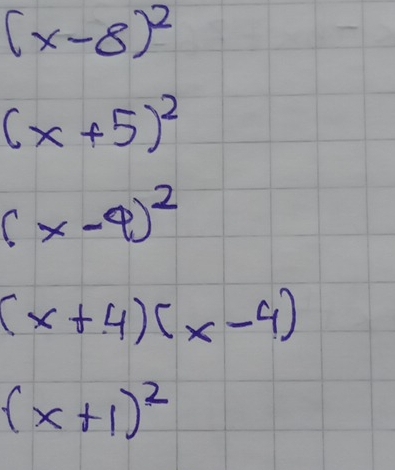 (x-8)²
(x+5)²
(x-9)²
(x+4)(x-4)
(x+1)²